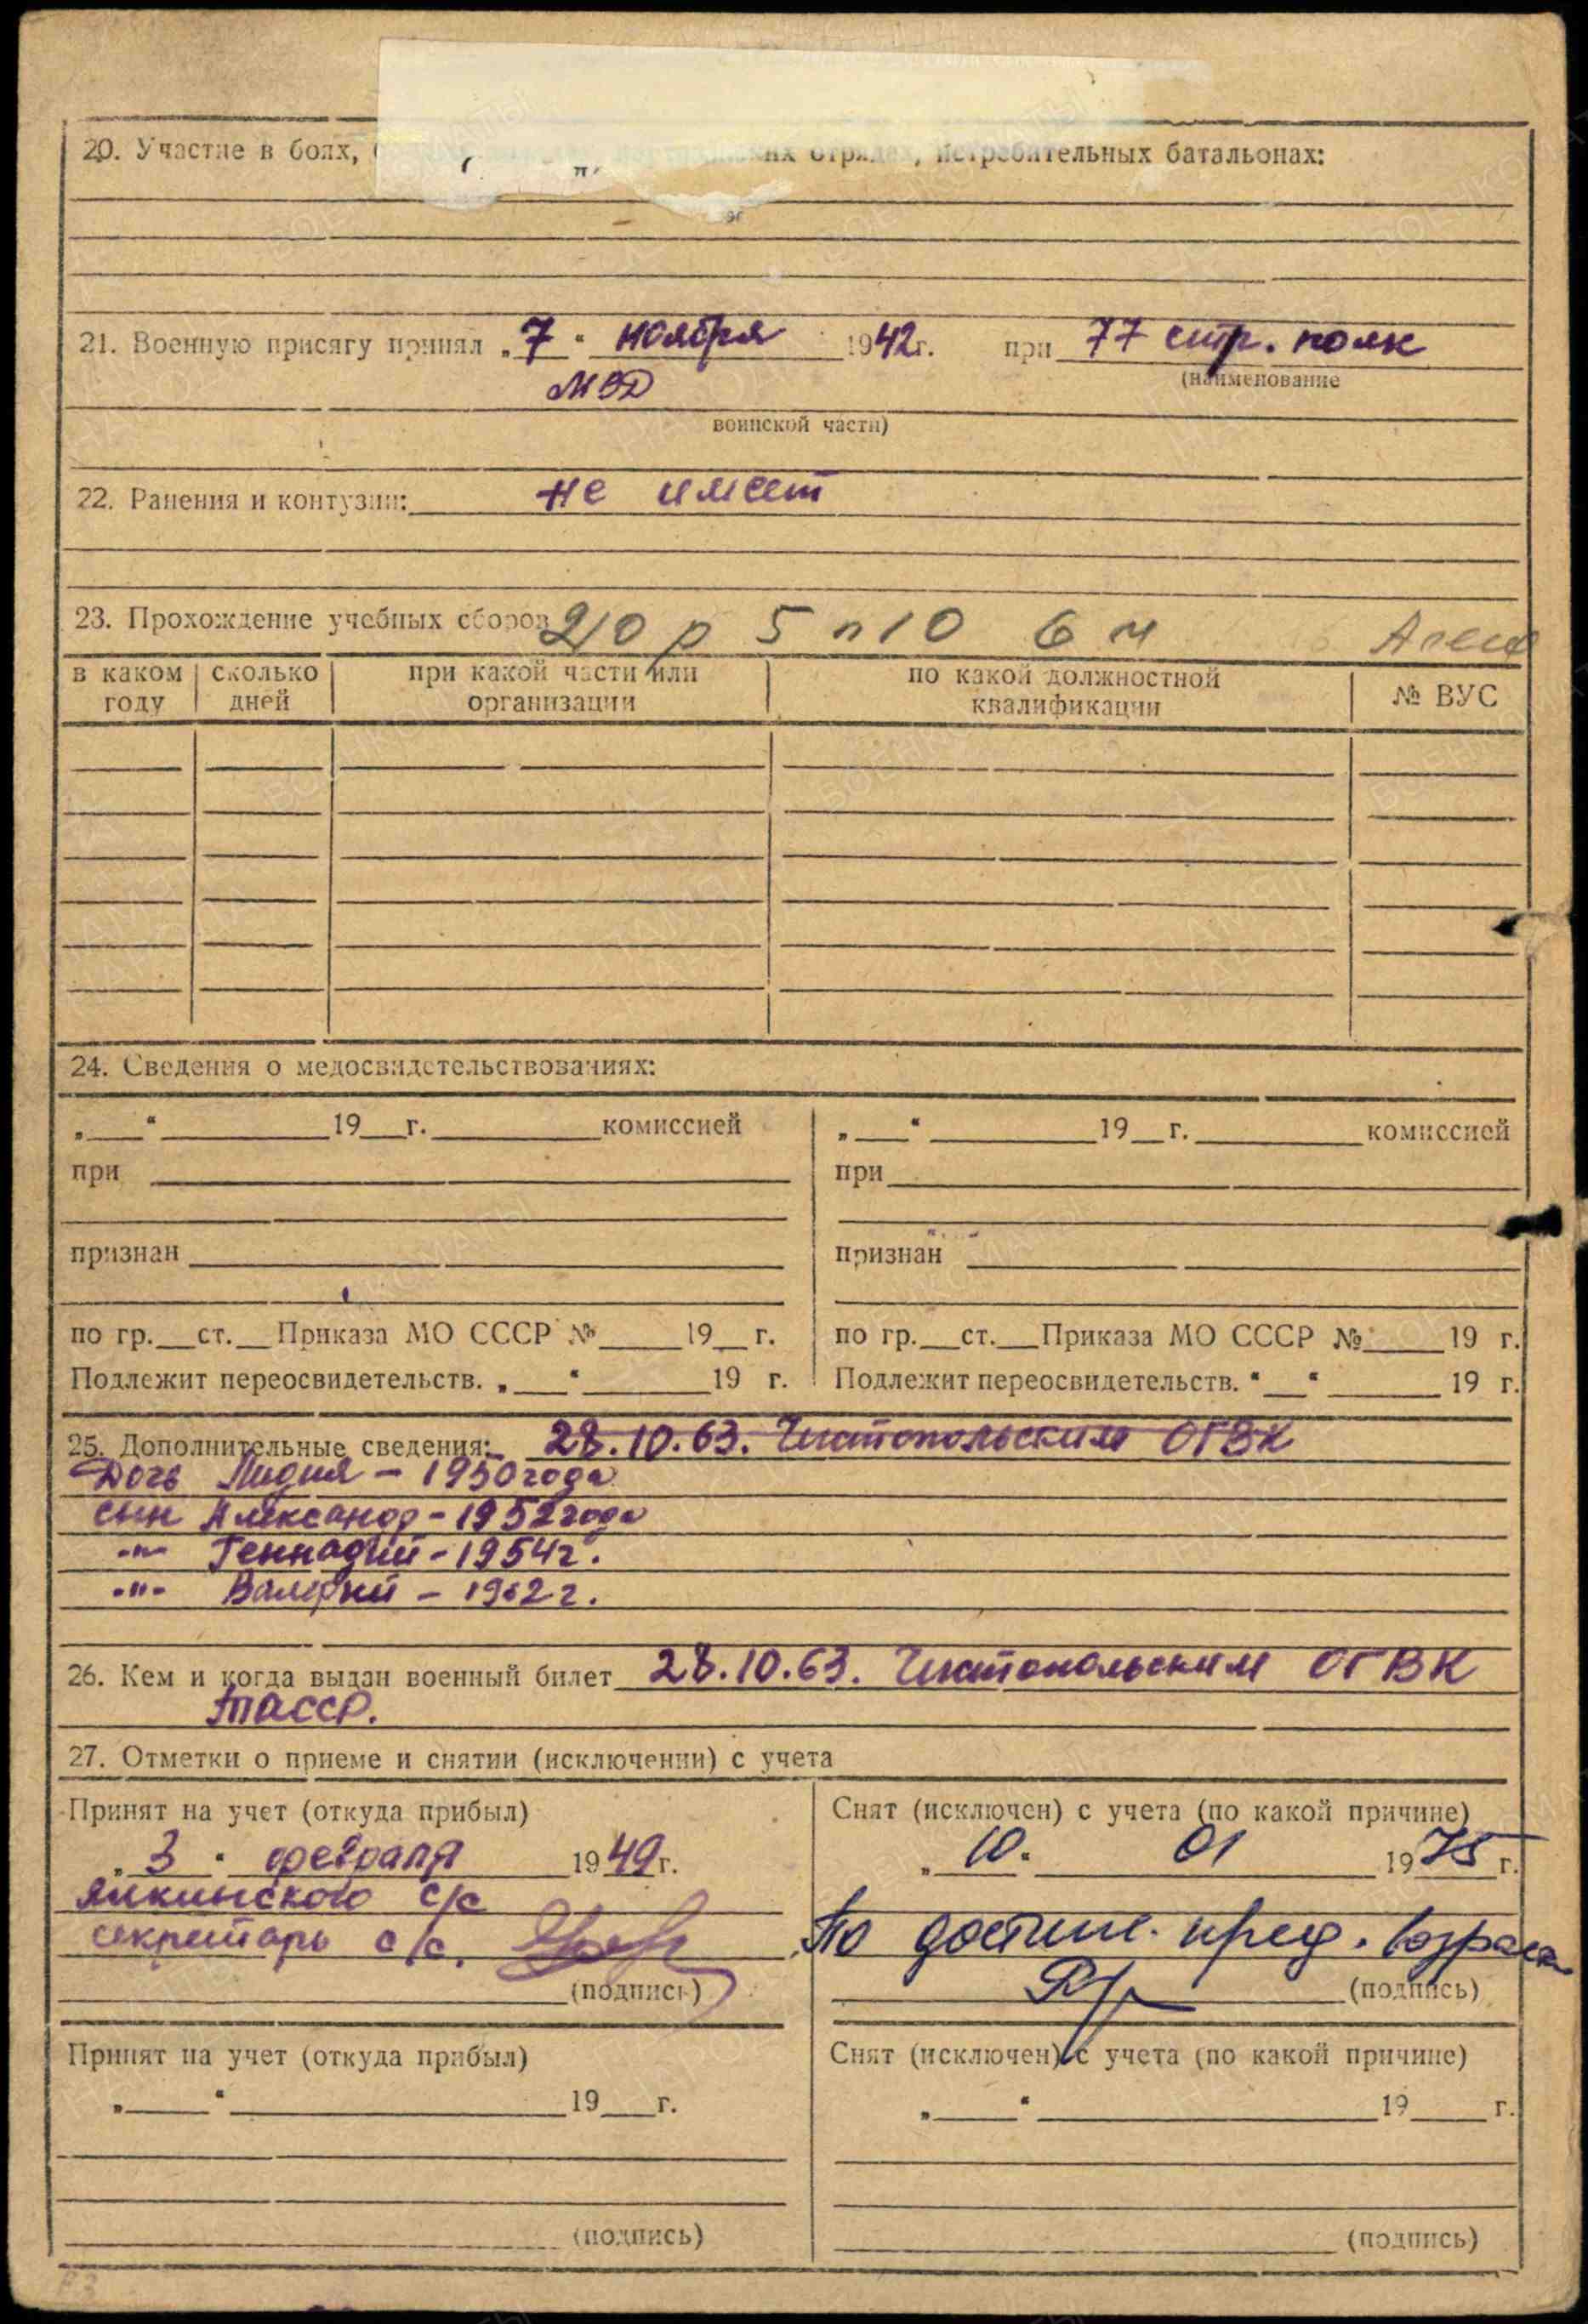 20. Участие в боях, их отрядах, истребительных батальонах:
21. Военную присягу принял „7“ ноября 1942г. при 77 стр. полк
(наименование
МВД
воинской части)
22. Ранения и контузии: не имеет
23. Прохождение учебных сборов 2/0 р 5 п10 6 ч
в каком году | сколько дней | при какой части или организации | по какой должностной квалификации | № ВУС
24. Сведения о медосвидетельствованиях:
„ “ 19 г. комиссией | „ “ 19 г. комиссией
при | при
признан | признан
по гр. ст. Приказа МО СССР № 19 г. | по гр. ст. Приказа МО СССР № 19 г.
Подлежит переосвидетельств. „ “ 19 г. | Подлежит переосвидетельств. “ “ 19 г.
25. Дополнительные сведения: 28.10.63. Чистопольским ОГВК
Дочь Лидия – 1950 года
сын Александр – 1952 года
-"- Геннадий – 1954 г.
-"- Валерий – 1962 г.
26. Кем и когда выдан военный билет 28.10.63. Чистопольским ОГВК
ТАССР.
27. Отметки о приеме и снятии (исключении) с учета
Принят на учет (откуда прибыл) | Снят (исключен) с учета (по какой причине)
„3“ февраля 1949г. | „10. 01 1975 г.
Ямкинского с/с
секретарь с/с. | По достиж. пред. возраста
(подпись) | (подпись)
Принят на учет (откуда прибыл) | Снят (исключен) с учета (по какой причине)
„ “ 19 г. | „ “ 19 г.
(подпись) | (подпись)